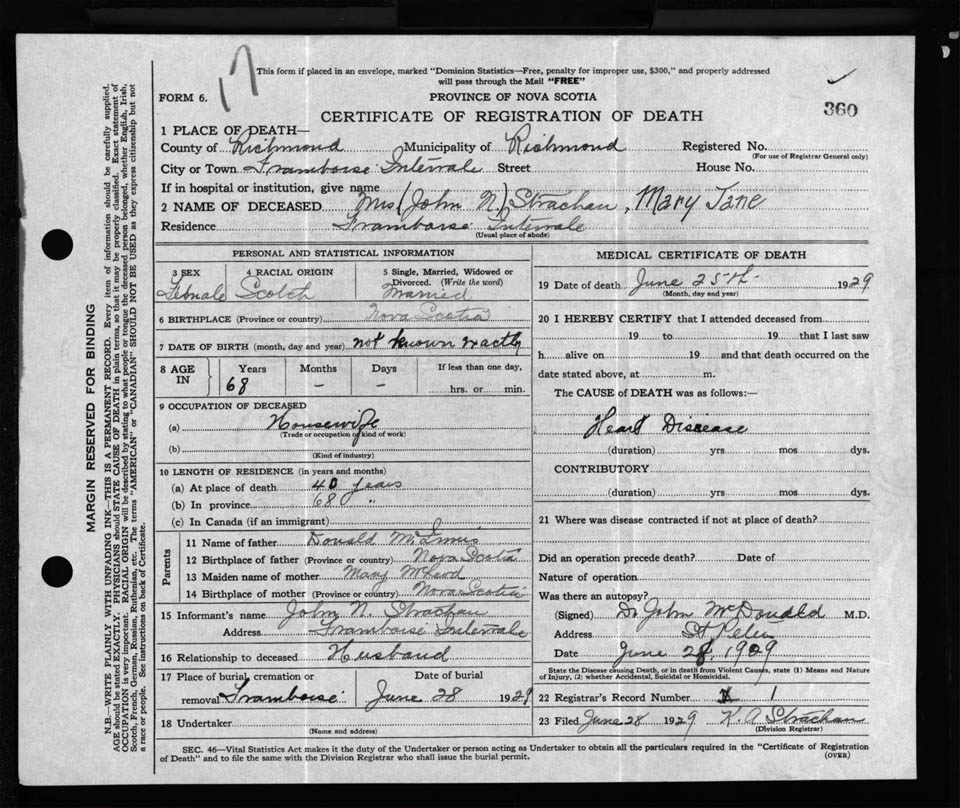 17
This form if placed in an envelope, marked "Dominion Statistics—Free, penalty for improper use, $300," and properly addressed
will pass through the Mail "FREE"
FORM 6.
PROVINCE OF NOVA SCOTIA
360
CERTIFICATE OF REGISTRATION OF DEATH
1 PLACE OF DEATH—
County of Richmond Municipality of Richmond Registered No.
(For use of Registrar General only)
City or Town Framboise Intervale Street House No.
If in hospital or institution, give name
2 NAME OF DECEASED Mrs (John N.) Strachan, Mary Jane
Residence Framboise Intervale
(Usual place of abode)
PERSONAL AND STATISTICAL INFORMATION
3 SEX 4 RACIAL ORIGIN 5 Single, Married, Widowed or
Divorced. (Write the word)
Female Scotch Married
6 BIRTHPLACE (Province or country) Nova Scotia
7 DATE OF BIRTH (month, day and year) not known exactly
8 AGE IN Years Months Days If less than one day,
68 – – hrs. or min.
9 OCCUPATION OF DECEASED
(a) Housewife
(Trade or occupation or kind of work)
(b)
(Kind of industry)
10 LENGTH OF RESIDENCE (in years and months)
(a) At place of death 40 years
(b) In province 68 "
(c) In Canada (if an immigrant)
Parents
11 Name of father Donald McInnis
12 Birthplace of father (Province or country) Nova Scotia
13 Maiden name of mother Mary McLeod
14 Birthplace of mother (Province or country) Nova Scotia
15 Informant's name John N. Strachan
Address Framboise Intervale
16 Relationship to deceased Husband
17 Place of burial, cremation or Date of burial
removal Framboise June 28 1929
18 Undertaker
(Name and address)
MEDICAL CERTIFICATE OF DEATH
19 Date of death June 25th 1929
(Month, day and year)
20 I HEREBY CERTIFY that I attended deceased from
19 to 19 that I last saw
h alive on 19 and that death occurred on the
date stated above, at m.
The CAUSE of DEATH was as follows:—
Heart Disease
(duration) yrs mos dys.
CONTRIBUTORY
(duration) yrs mos dys.
21 Where was disease contracted if not at place of death?
Did an operation precede death? Date of
Nature of operation
Was there an autopsy?
(Signed) Dr John McDonald M.D.
Address St Peters
Date June 28, 1929
State the Disease causing Death, or in death from Violent Causes, state (1) Means and Nature
of Injury, (2) whether Accidental, Suicidal or Homicidal.
22 Registrar's Record Number 1
23 Filed June 28 1929 K. A Strachan
(Division Registrar)
SEC. 46—Vital Statistics Act makes it the duty of the Undertaker or person acting as Undertaker to obtain all the particulars required in the "Certificate of Registration
of Death" and to file the same with the Division Registrar who shall issue the burial permit.
(OVER)
MARGIN RESERVED FOR BINDING
N.B.—WRITE PLAINLY WITH UNFADING INK—THIS IS A PERMANENT RECORD. Every item of information should be carefully supplied.
AGE should be stated EXACTLY. PHYSICIANS should STATE CAUSE OF DEATH in plain terms, so that it may be properly classified. Exact statement of
OCCUPATION is very important. RACIAL ORIGIN will be described by stating to what people or tongue the deceased person belonged, whether English, Irish,
Scotch, French, German, Russian, Ruthenian, etc. The terms "AMERICAN" or "CANADIAN" SHOULD NOT BE USED as they express citizenship but not
a race or people. See instructions on back of Certificate.